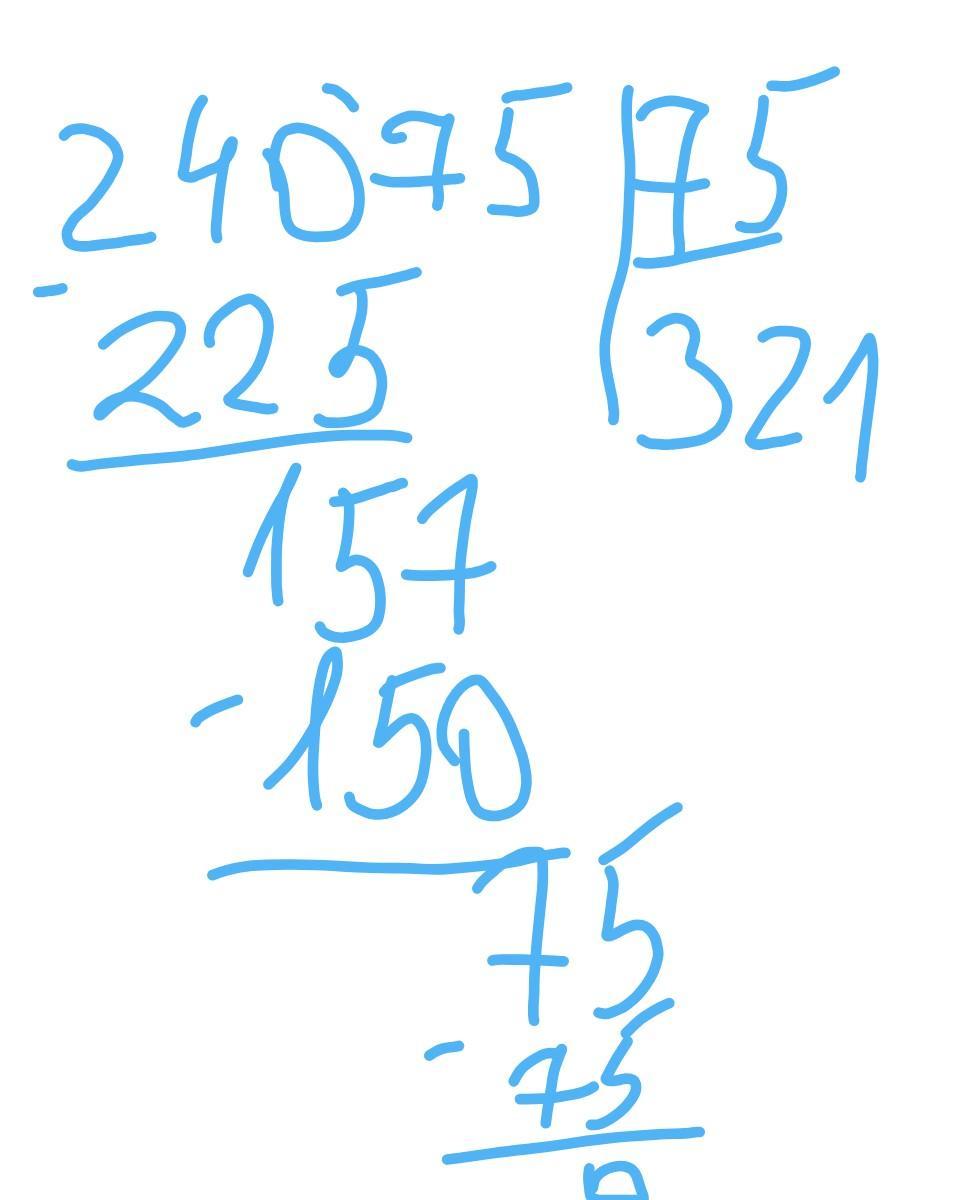 24075 75
- 225 321
157
- 150
75
- 75
0